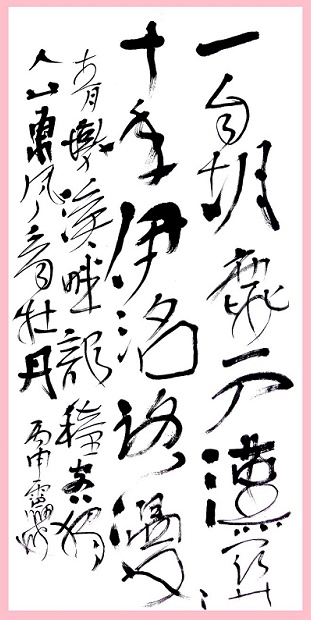 一自胡塵入漢關
十年伊洛路漫〻
青墩溪畔龍鍾客獨
立東風看牡丹 丙申